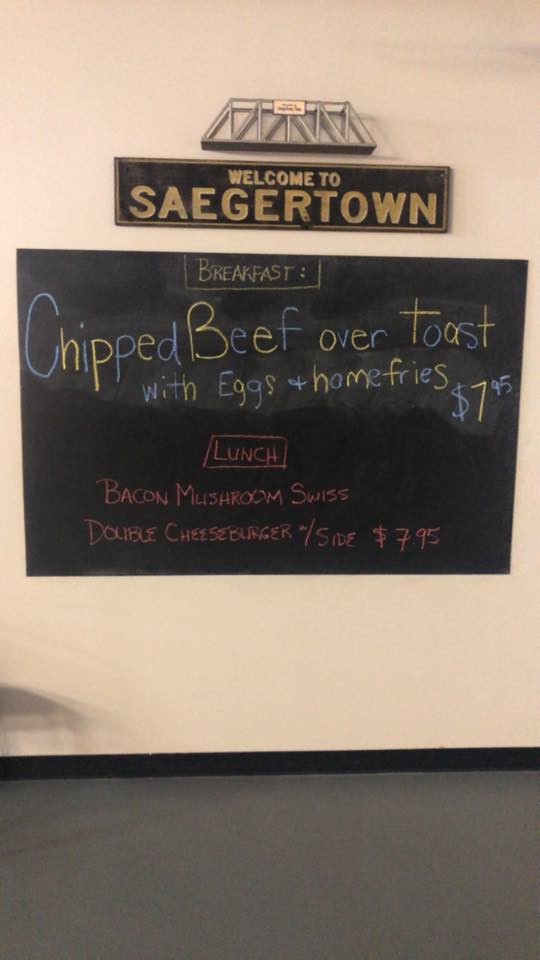 WELCOME TO
SAEGERTOWN
BREAKFAST:
Chipped Beef over toast
with Eggs & homefries $7.95
LUNCH
BACON MUSHROOM SWISS
DOUBLE CHEESEBURGER w/ SIDE $7.95